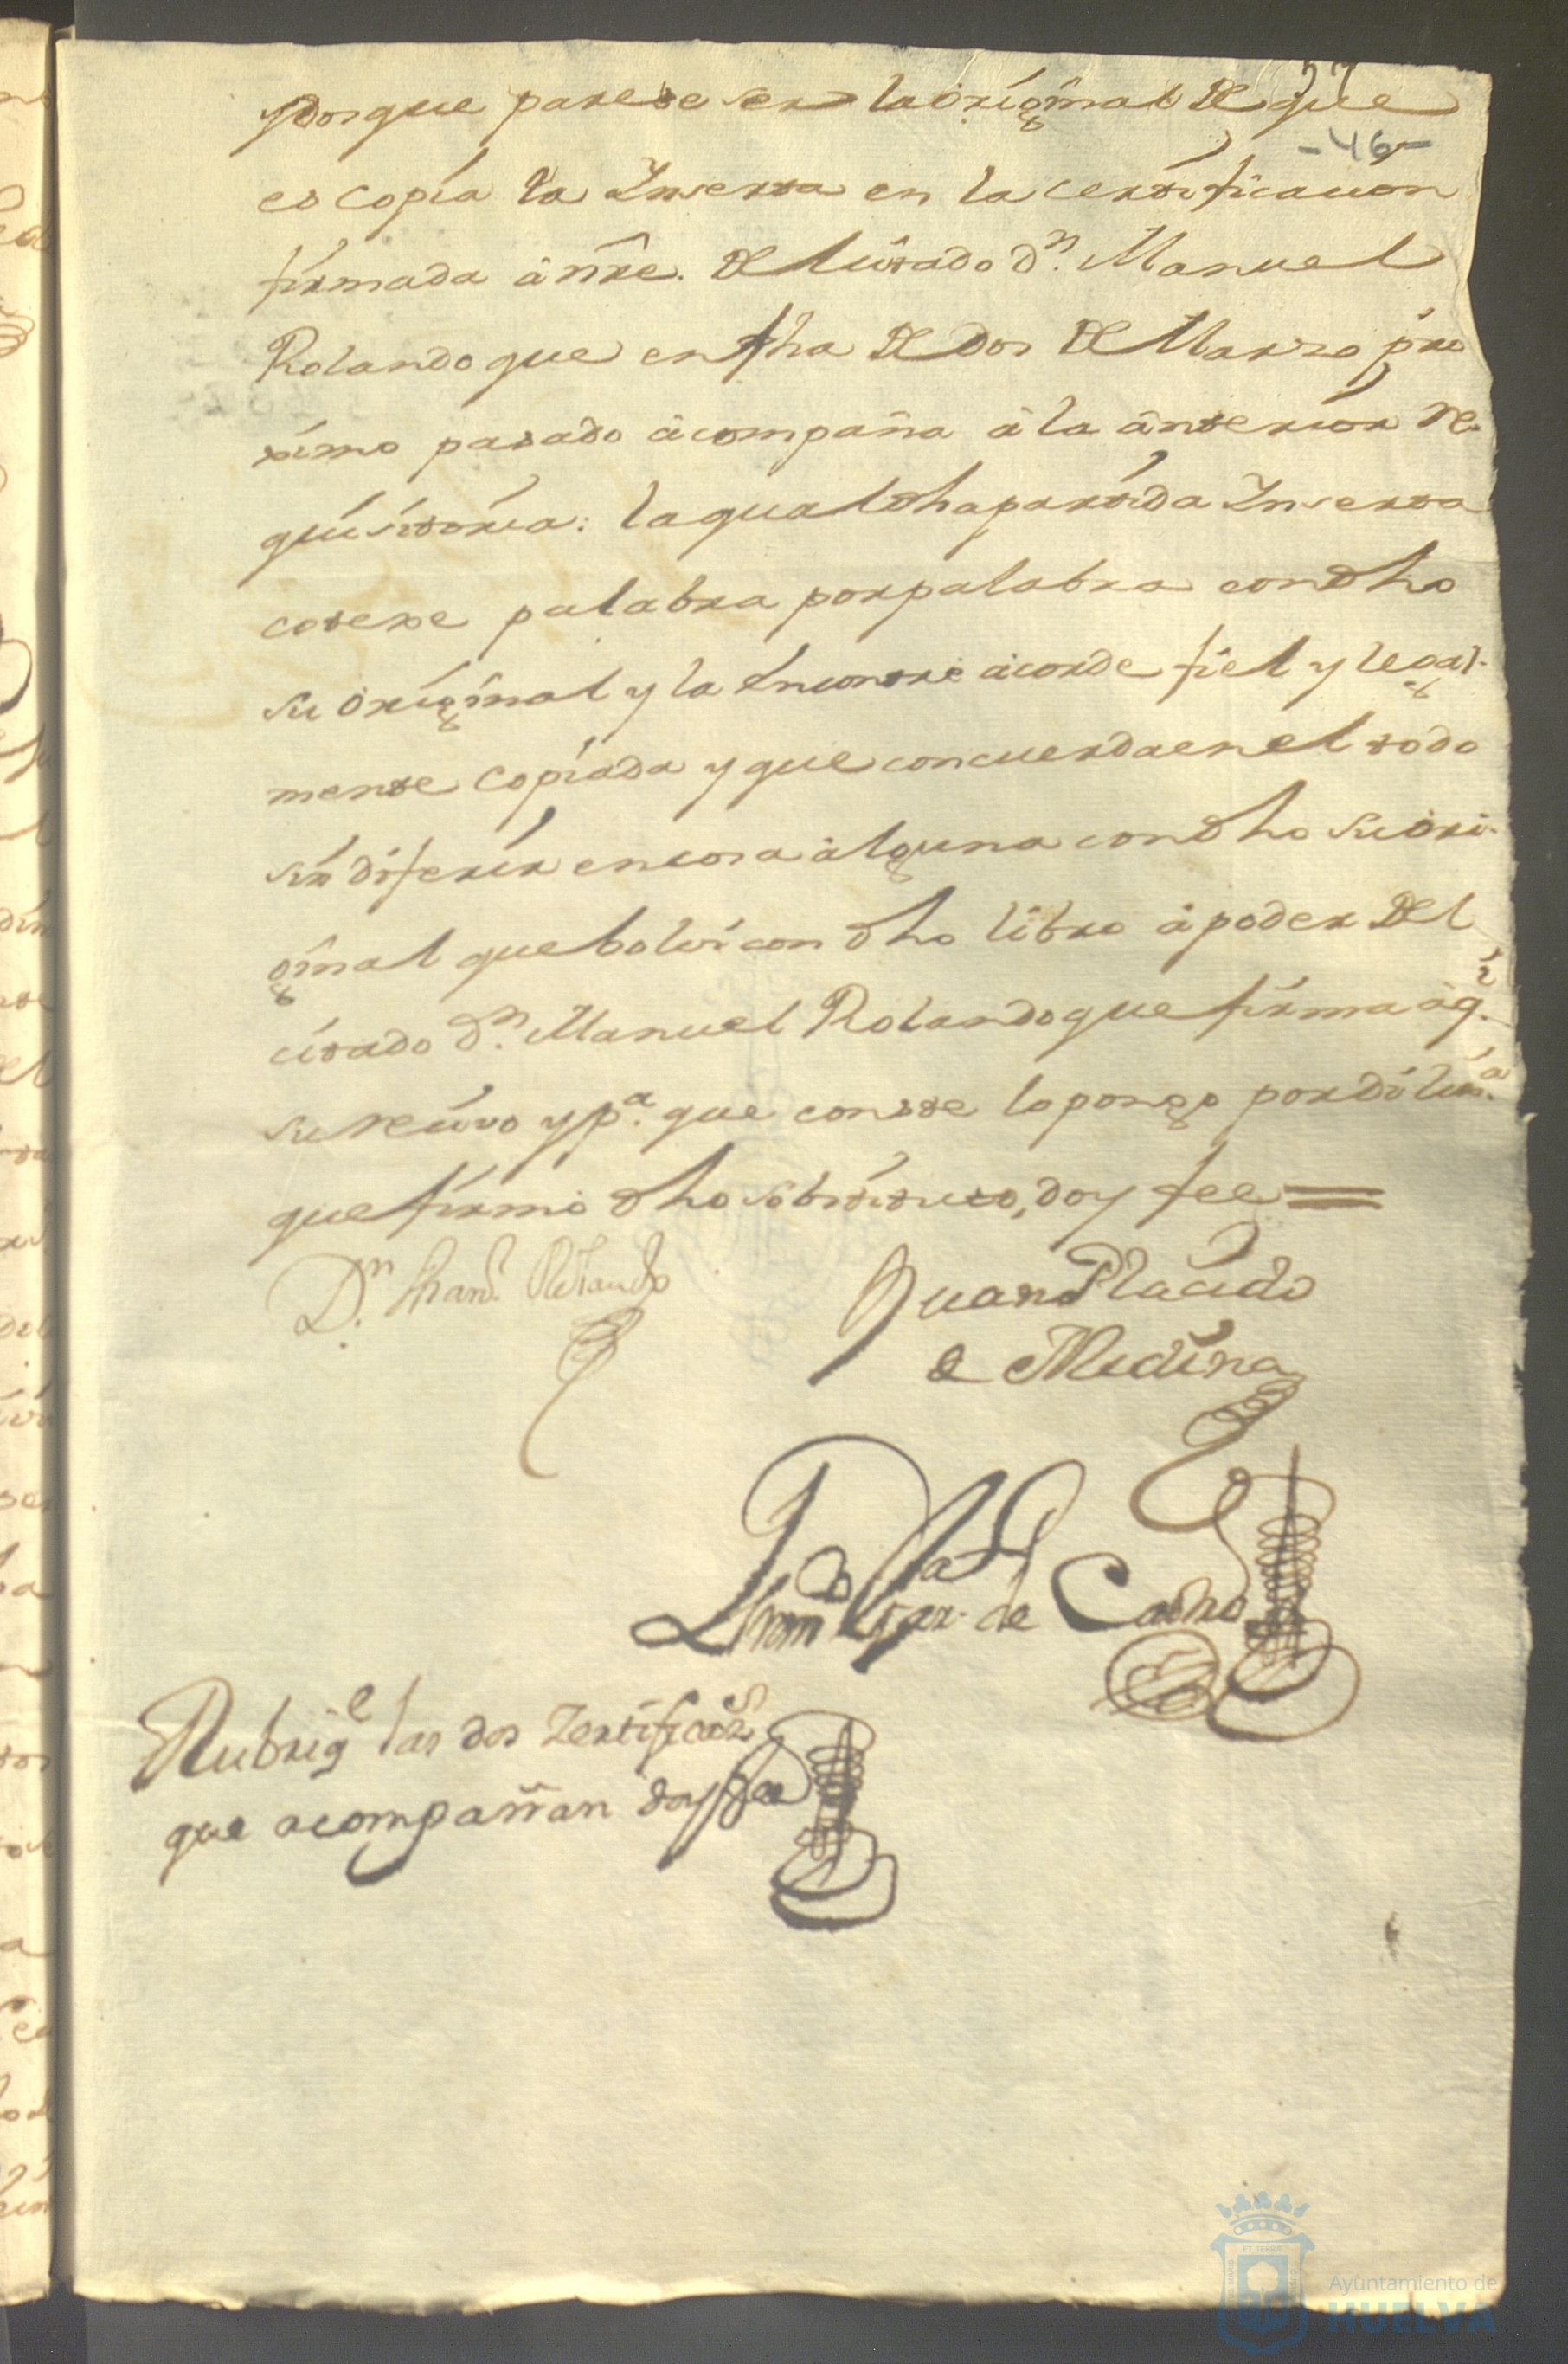 y Porque parese ser la original de que
-46-
es copia la Inserta en la certificacion
firmada â nre. del citado Dn. Manuel
Rolando que en fha de dos de Marzo pro
ximo pasado acompaña â la ânterior re
quisitoria: la qual dha partida Inserta
cotexe palabra por palabra con dho
su original y la Encontre acorde fiel y legal-
mente copiada y que concuerda en el todo
sin diferir en cosa alguna con dho su ori-
ginal que bolvi con dho libro â poder del
citado Dn. Manuel Rolando que firma aqi.
su recivo y pa. que conste lo pongo por diliza.
que firmó dho sostituto, doy fee =
Dn. Manl. Rolando
Juan Placido
de Medina
de Castro
Rubrige las dos Zertificaz.s
que acompañan doy fee
Ayuntamiento de
HUELVA